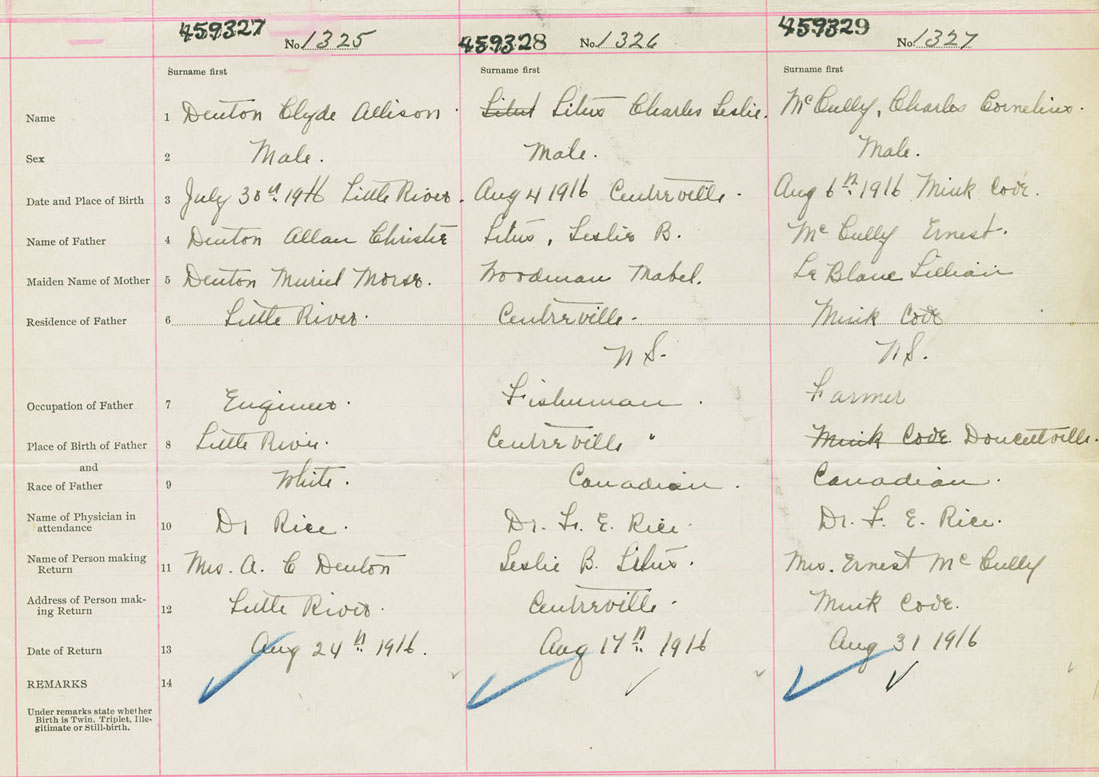 459327 No. 1325 459328 No. 1326 459329 No. 1327
Surname first Surname first Surname first
Name 1 Denton Clyde Allison. Situs Charles Leslie. McCully, Charles Cornelius.
Sex 2 Male. Male. Male.
Date and Place of Birth 3 July 30th 1916 Little River. Aug 4 1916 Centreville. Aug 6th 1916 Mink Cove.
Name of Father 4 Denton Allan Christie Situs, Leslie B. McCully Ernest.
Maiden Name of Mother 5 Denton Muriel Morse. Woodman Mabel. Le Blanc Lillian
Residence of Father 6 Little River. Centreville. Mink Cove
N S. N S.
Occupation of Father 7 Engineer. Fisherman. Farmer
Place of Birth of Father 8 Little River. Centreville " Mink Cove Doucetville.
and
Race of Father 9 White. Canadian. Canadian.
Name of Physician in
attendance 10 Dr Rice. Dr. F. E. Rice. Dr. F. E. Rice.
Name of Person making
Return 11 Mrs. A. C Denton Leslie B. Situs. Mrs. Ernest McCully
Address of Person mak-
ing Return 12 Little River. Centreville. Mink Cove.
Date of Return 13 Aug 24th 1916. Aug 17th 1916 Aug 31 1916
REMARKS 14
Under remarks state whether
Birth is Twin, Triplet, Ille-
gitimate or Still-birth.